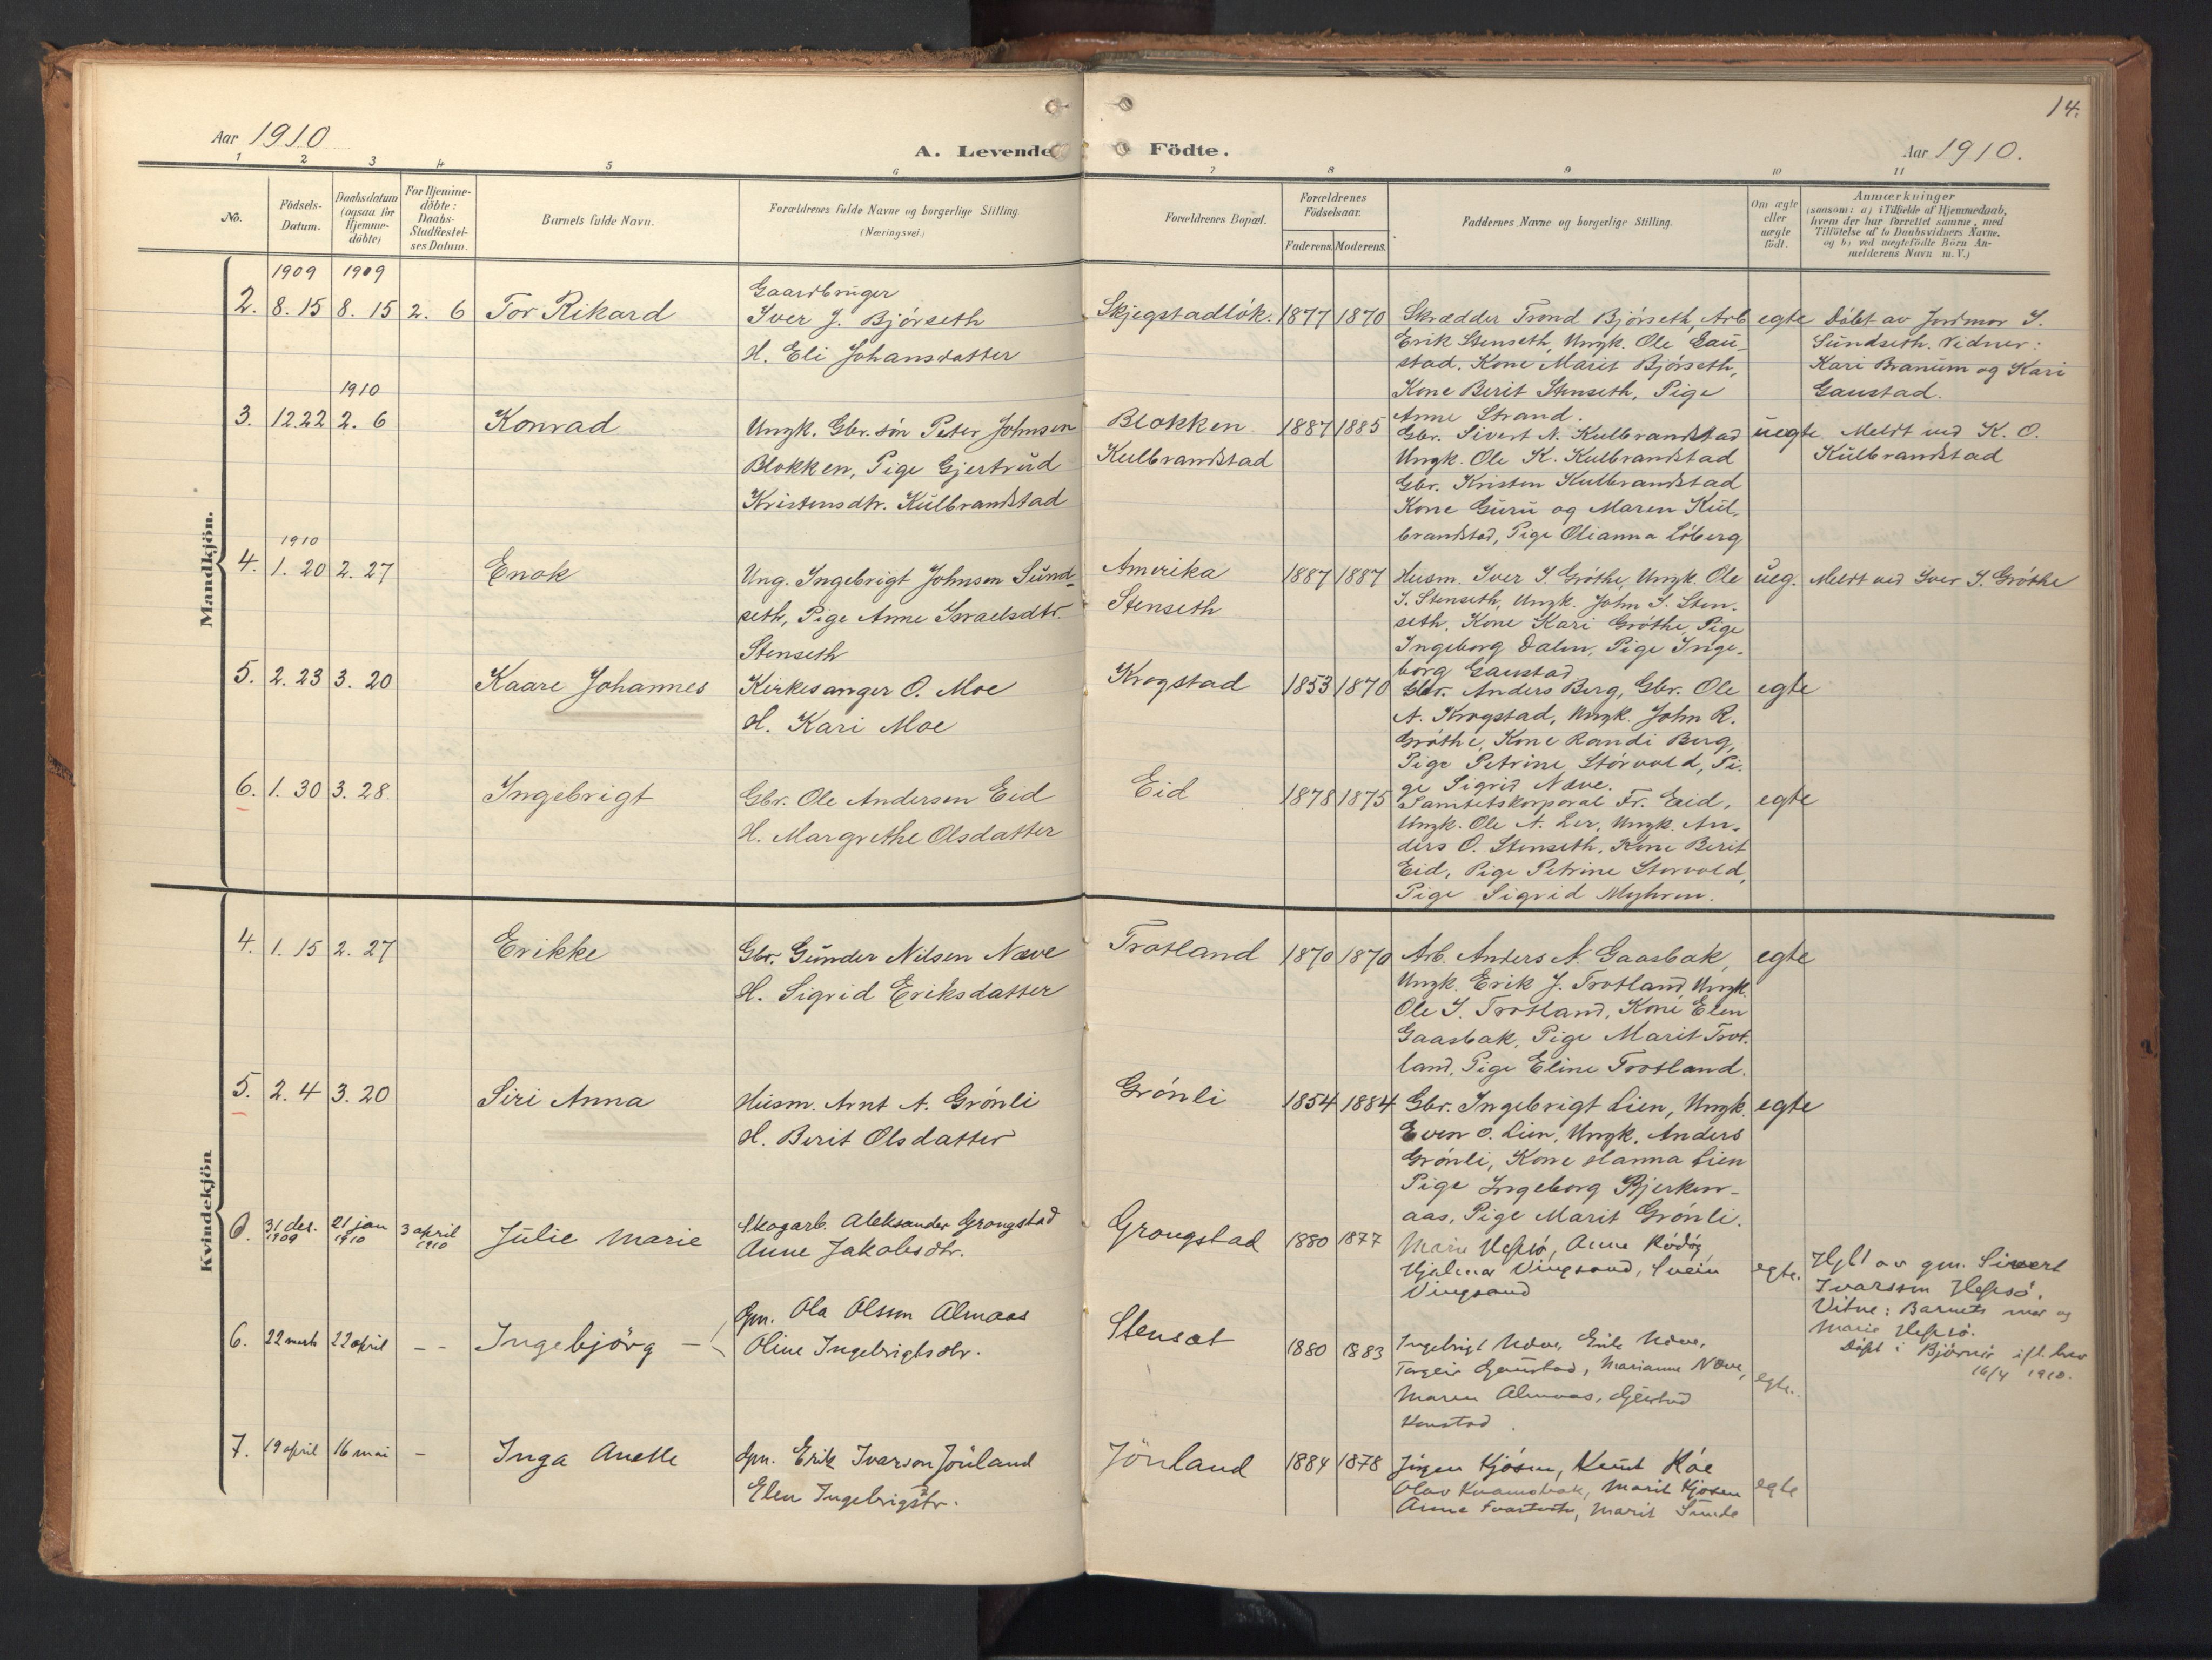 14.
Aar 1910
A. Levende Födte.
Aar 1910.
1 2 3 4 5 6 7 8 9 10 11
No.
Födsels-Datum.
Daabsdatum (ogsaa for Hjemme-döbte)
For Hjemme-döbte: Daabs-Stadfæstel-ses Datum.
Barnets fulde Navn.
Forældrenes fulde Navne og borgerlige Stilling
(Næringsvei.)
Forældrenes Bopæl.
Forældrenes Födselsaar.
Faderens. Moderens.
Faddernes Navne og borgerlige Stilling.
Om ægte eller uægte födt.
Anmærkninger
(saasom: a) i Tilfælde af Hjemmedaab,
hvem der har forrettet samme, med
Tilföielse af to Daabsvidners Navne,
og b) ved uægtefödte Börn An-
melderens Navn m. V.)
Mandkjön.
1909 1909
2. 8. 15 8. 15 2. 6 Tor Rikard
Gaardbruger
Iver J. Bjørseth
H. Eli Johansdatter
Skjegstadløk. 1877 1870
Skrædder Trond Bjørseth, Arb
Erik Stenseth, Ungk. Ole Gau-
stad, Kone Marit Bjørseth,
Kone Berit Stenseth, Pige
Anne Strand.
egte
Døbt av Jordmor S.
Sundseth. Vidner:
Kari Branum og Kari
Gaustad.
1910
3. 12.22 2. 6 Konrad
Ungk. Gbr. søn Peter Johnsen
Blokken, Pige Gjertrud
Kristensdtr. Kulbrandstad
Blokken
Kulbrandstad
1887 1885
Gbr. Sivert N. Kulbrandstad
Ungk. Ole K. Kulbrandstad
Gbr. Kristen Kulbrandstad
Kone Guru og Maren Kul-
brandstad, Pige Olianna Løberg
uegte
Meldt ved K. O.
Kulbrandstad
1910
4. 1. 20 2. 27 Enok
Ung. Ingebrigt Johnsen Sund-
seth, Pige Anne Israelsdtr.
Stenseth
Amerika
Stenseth
1887 1887
Husm. Iver S. Grøthe, Ungk. Ole
I. Stenseth, Ungk. John I. Sten-
seth, Kone Kari Grøthe, Pige
Ingeborg Dalen, Pige Inge-
borg Gaustad
ueg.
Meldt ved Iver S. Grøthe
5. 2. 23 3. 20 Kaare Johannes
Kirkesanger O. Moe
H. Kari Moe
Krogstad 1853 1870
Gbr. Anders Berg, Gbr. Ole
A. Krogstad, Ungk. John R.
Grøthe, Kone Randi Berg,
Pige Petrine Storvold, Pi-
ge Sigrid Næve.
egte
6. 1. 30 3. 28 Ingebrigt
Gbr. Ole Andersen Eid
H. Margrethe Olsdatter
Eid 1878 1875
Sanitetskorporal Fr. Eid,
Ungk. Ole A. Ler, Ungk. An-
ders O. Stenseth, Kone Berit
Eid, Pige Petrine Storvold,
Pige Sigrid Myhren.
egte
Kvindekjön
4. 1. 15 2. 27 Erikke
Gbr. Gunder Nilsen Næve
H. Sigrid Eriksdatter
Trotland 1870 1870
Arb. Anders N. Gaasbak,
Ungk. Erik J. Trotland, Ungk.
Ole I. Trotland, Kone Elen
Gaasbak, Pige Marit Trot-
land, Pige Eline Trotland.
egte
5. 2. 4 3. 20 Siri Anna
Husm. Arnt A. Grønli
H. Berit Olsdatter
Grønli 1854 1884
Gbr. Ingebrigt Lien, Ungk.
Even O. Lien, Ungk. Anders
Grønli, Kone Hanna Lien
Pige Ingeborg Bjerken-
aas, Pige Marit Grønli.
egte
6. 31 des. 1909 21 jan 1910 3 april 1910 Julie Marie
Skogarb. Aleksander Grongstad
Anne Jakobsdtr.
Grongstad 1880 1877
Marie Hepsø, Anne
Hjalmar Vingsand, Svein
Vingsand
egte.
Hjbt av gm. Sivert
Ivarssen Hepsø.
Vitne: Barnets mor og
Marie Hepsø.
6. 22 marts 22 april - - Ingebjörg -
Gm. Ola Olsson Almaas
Oline Ingebrigtsdtr.
Stensat 1880 1883
Ingebrigt Næve, Erik Næve,
Torgeir Gaustad, Marianne Næve,
Maren Almaas, Gjertrud
egte.
Døpt i Bjørnør ifl. brev
16/4 1910.
7. 19 april 16 mai - Inga Anette
Gm. Erik Ivarson Jönland
Elen Ingebrigtsdtr.
Jönland 1884 1878
Jörgen Kjösen, Knut Röe
Olav Kvamsbak, Marit Kjösen
Anne, Marit Sunde
egte